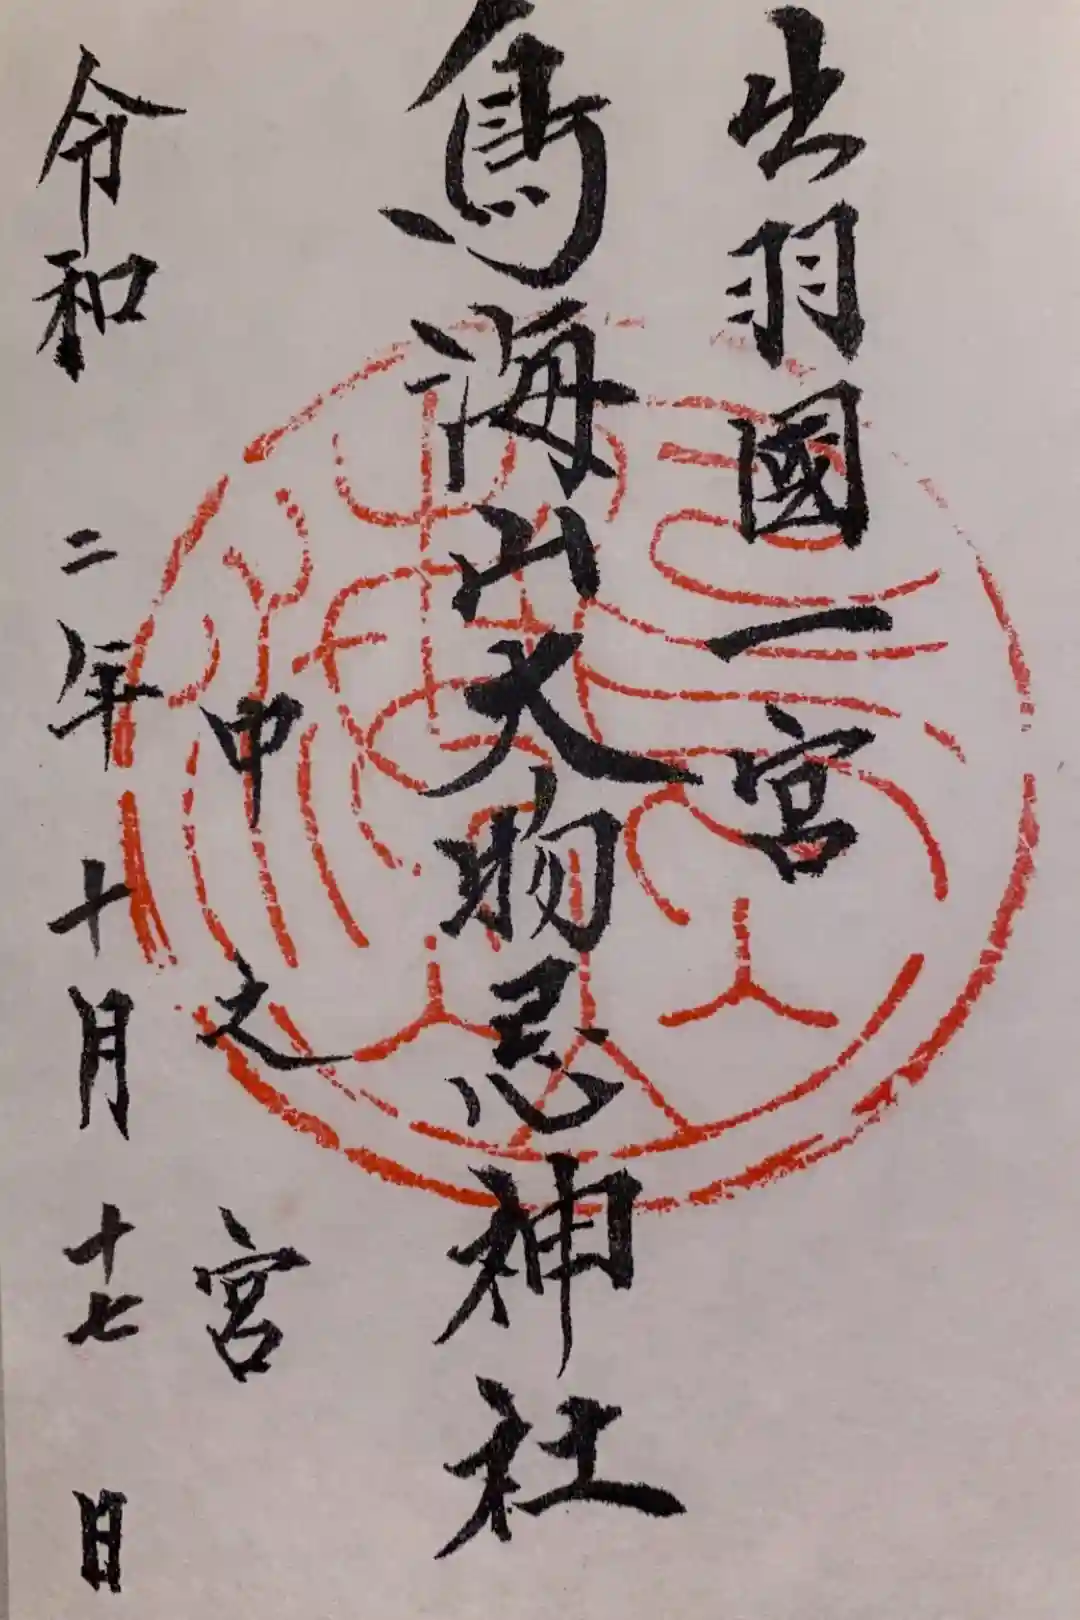 出羽國一宮
鳥海山大物忌神社
中之宮
令和二年十月十七日